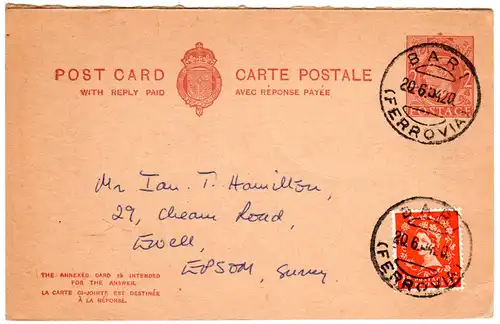 POST CARD CARTE POSTALE
WITH REPLY PAID AVEC RÉPONSE PAYÉE
BARI
20.6.54.20
(FERROVIA)
POSTAGE
Mr Ian. T. Hamilton,
29, Cheam Road,
Ewell,
EPSOM, Surrey
BARI
20.6.54.
(FERROVIA)
THE ANNEXED CARD IS INTENDED
FOR THE ANSWER.
LA CARTE CI-JOINTE EST DESTINÉE
À LA RÉPONSE.